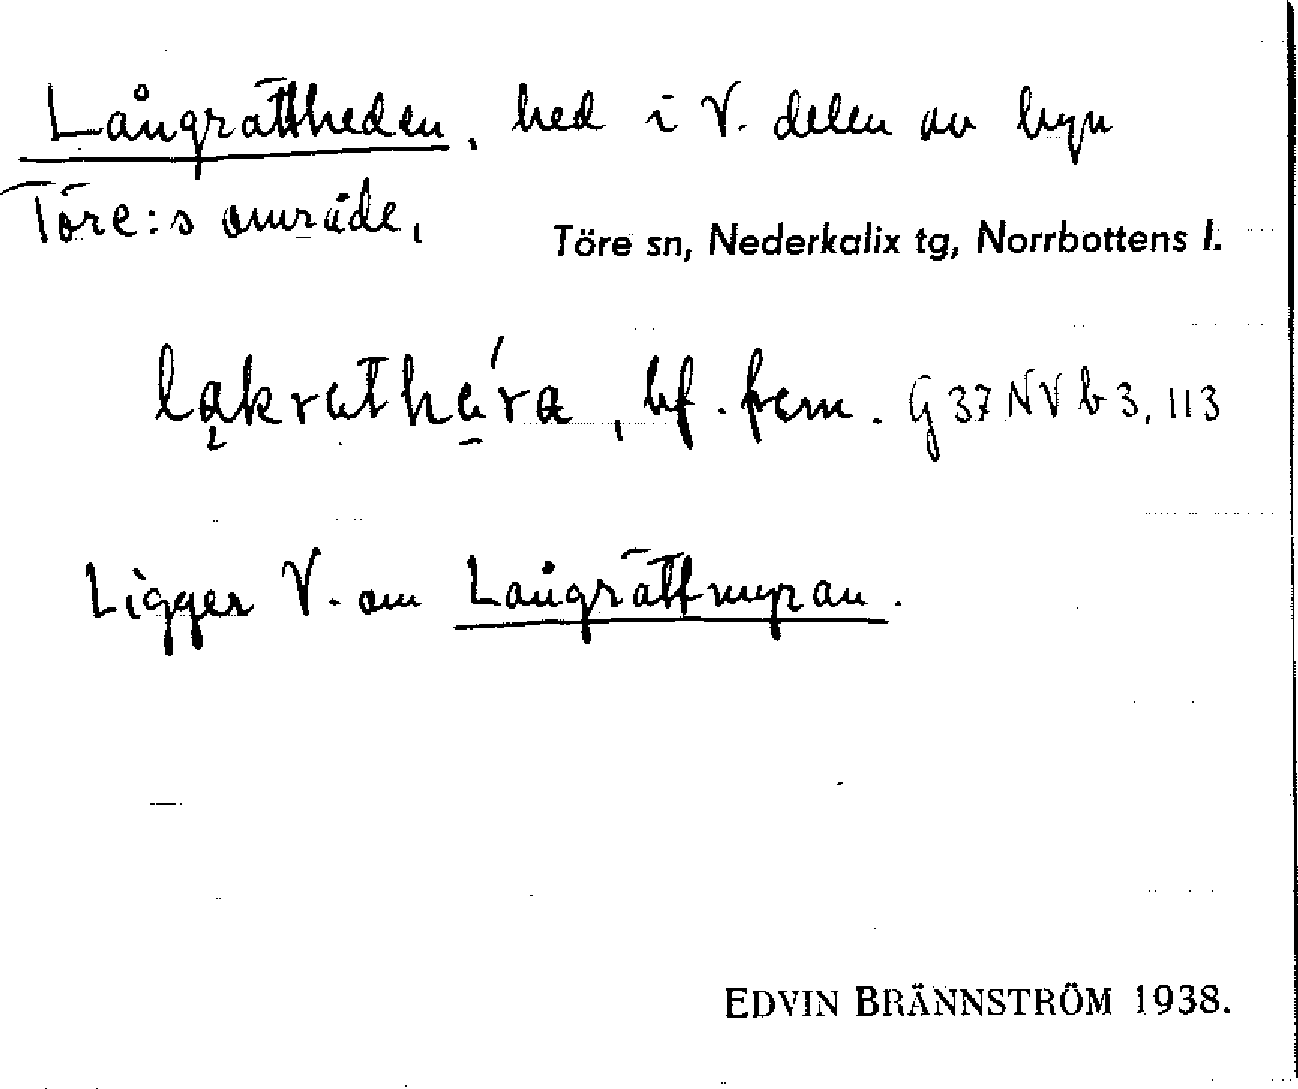 Långrättheden, hed i V. delen av byn
Töre:s område,
Töre sn, Nederkalix tg, Norrbottens l.
bf. fem. G 37 NV b 3, 113
Ligger V. om Långrättmyran.
EDVIN BRÄNNSTRÖM 1938.